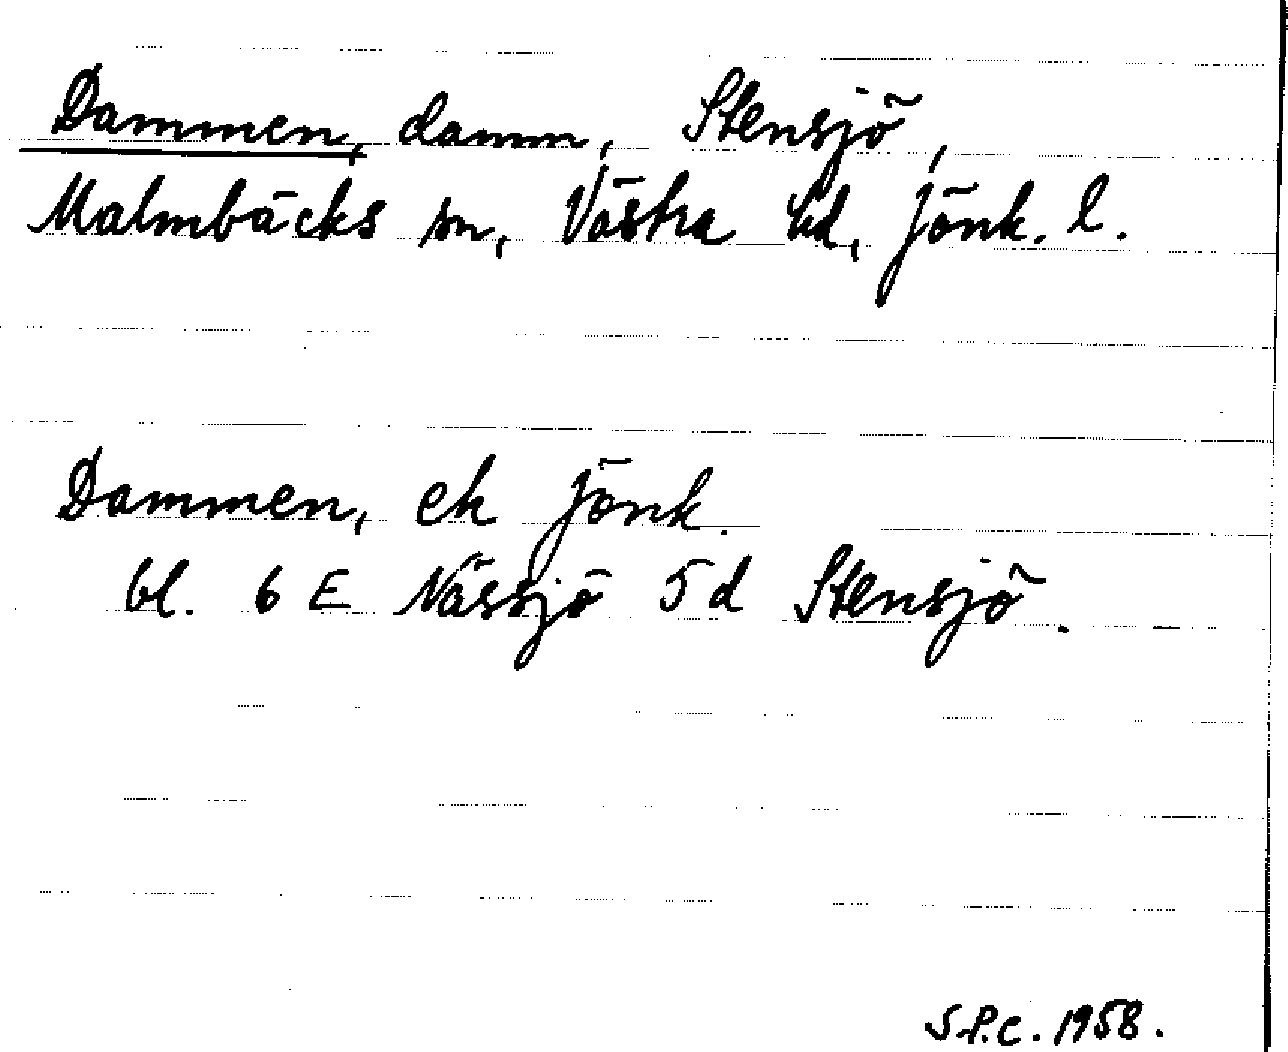 Dammen, damm, Stensjö,
Malmbäcks sn, Västra hd, Jönk. l.
Dammen, ek Jönk.
bl. 6 E Nässjö 5 d Stensjö.
S.P.C. 1958.